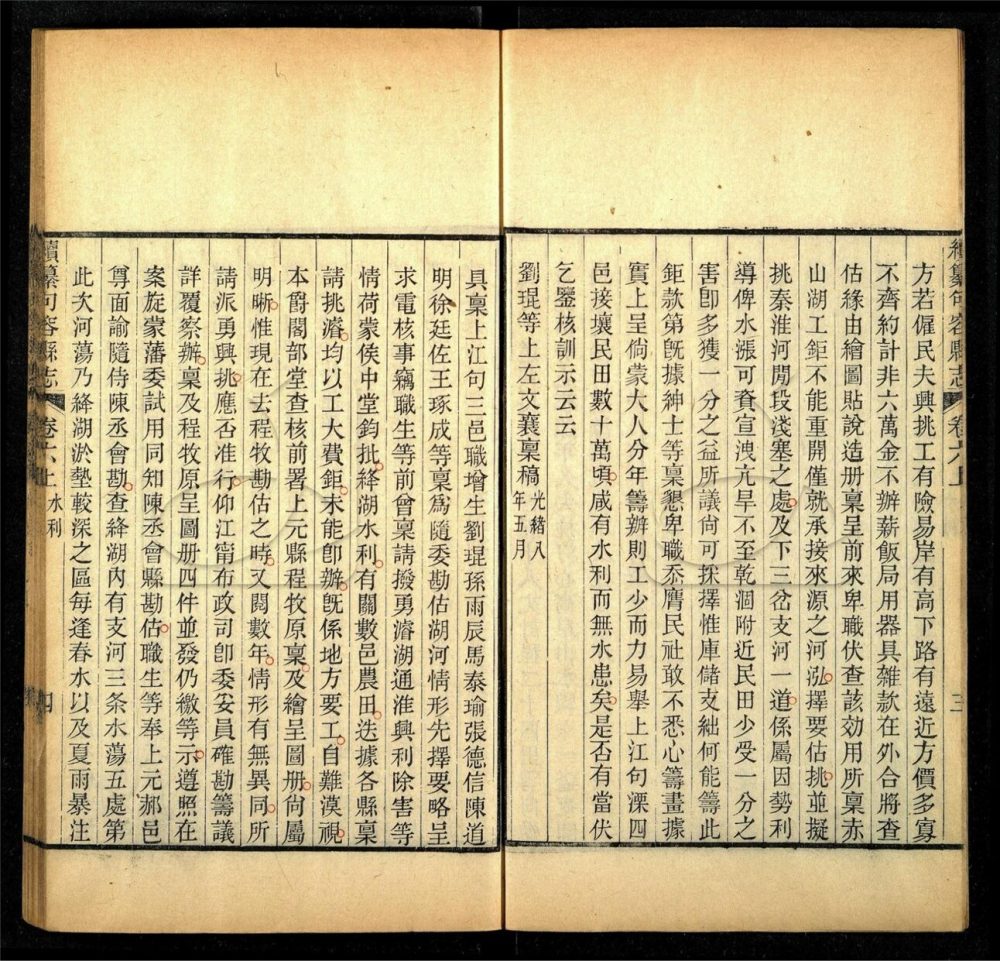 續纂句容縣志 卷六上 三
方若僱民夫興挑工有險易岸有高下路有遠近方價多寡
不齊約計非六萬金不辦薪飯局用器具雜款在外合將查
估緣由繪圖貼說造册稟呈前來卑職伏查該効用所稟赤
山湖工鉅不能重開僅就承接來源之河泓擇要估挑並擬
挑秦淮河閒段淺塞之處及下三岔支河一道係屬因勢利
導俾水漲可資宣洩亢旱不至乾涸附近民田少受一分之
害卽多獲一分之益所議尙可採擇惟庫儲支絀何能籌此
鉅款第旣據紳士等稟懇卑職忝膺民社敢不悉心籌畫據
實上呈倘蒙大人分年籌辦則工少而力易舉上江句溧四
邑接壤民田數十萬頃咸有水利而無水患矣是否有當伏
乞鑒核訓示云云
劉琨等上左文襄稟稿 光緒八年五月
具稟上江句三邑職增生劉琨孫雨辰馬泰瑜張德信陳道
明徐廷佐王琢成等稟爲隨委勘估湖河情形先擇要略呈
求電核事竊職生等前曾稟請撥勇濬湖通淮興利除害等
情荷蒙侯中堂鈞批絳湖水利有關數邑農田迭據各縣稟
請挑濬均以工大費鉅未能卽辦旣係地方要工自難漠視
本爵閣部堂查核前署上元縣程牧原稟及繪呈圖册尙屬
明晰惟現在去程牧勘估之時又閱數年情形有無異同所
請派勇興挑應否准行仰江甯布政司卽委妥員確勘籌議
詳覆察辦稟及程牧原呈圖册四件並發仍繳等示遵照在
案旋蒙藩委試用同知陳丞會縣勘估職生等奉上元郝邑
尊面諭隨侍陳丞會勘查絳湖內有支河三条水蕩五處第
此次河蕩乃絳湖淤墊較深之區每逢春水以及夏雨暴注
續纂句容縣志 卷六上 水利 四